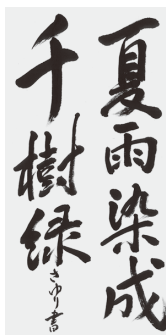 夏雨染成
千樹緑
さゆり書